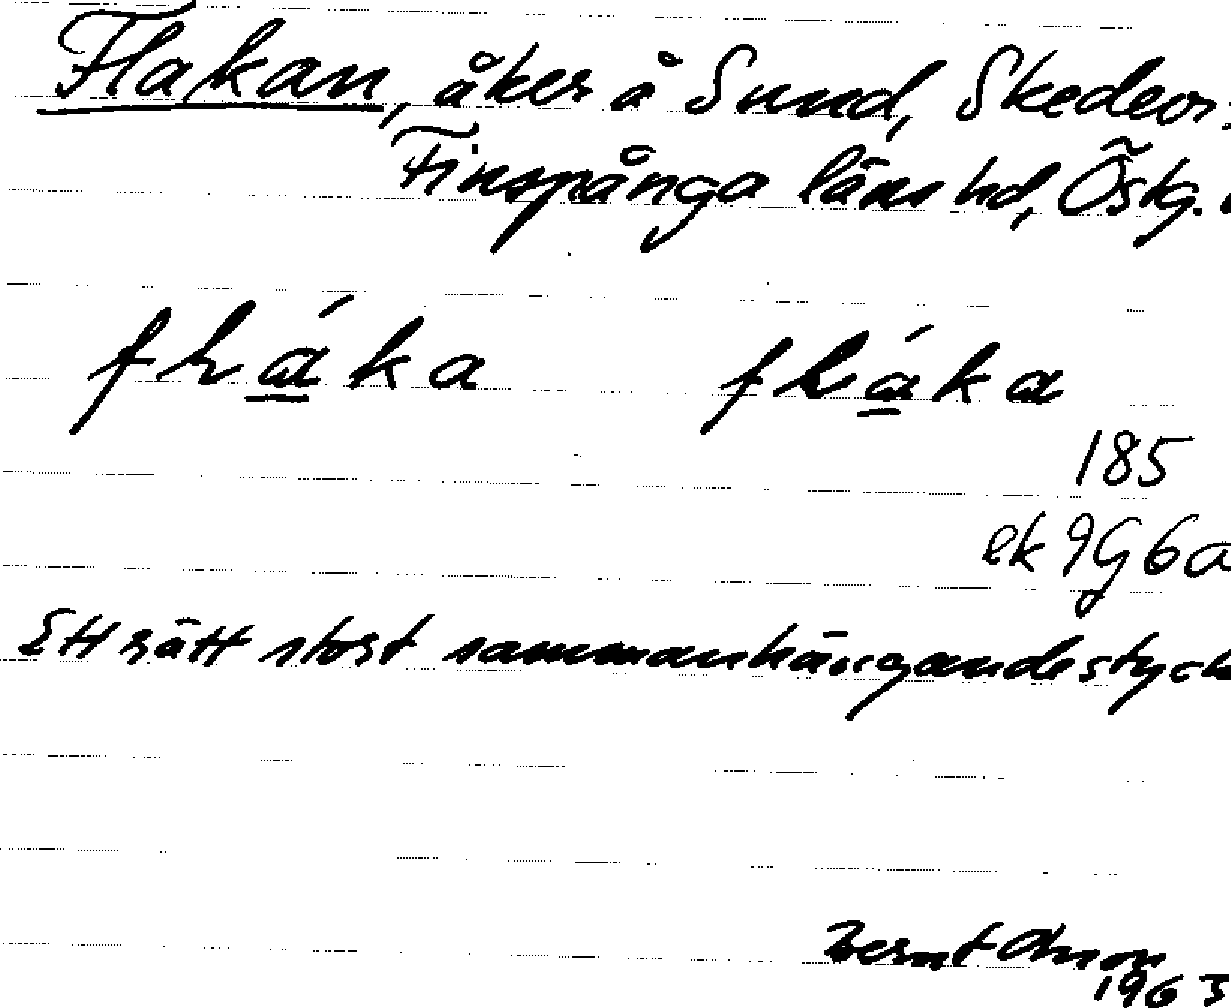 Flakan, åker å Sund, Skedevi
Finspånga läns hd, Östg.
fláka fláka
185
ek 9G6a
Ett rätt stort sammanhängande styck
Bernt
1963